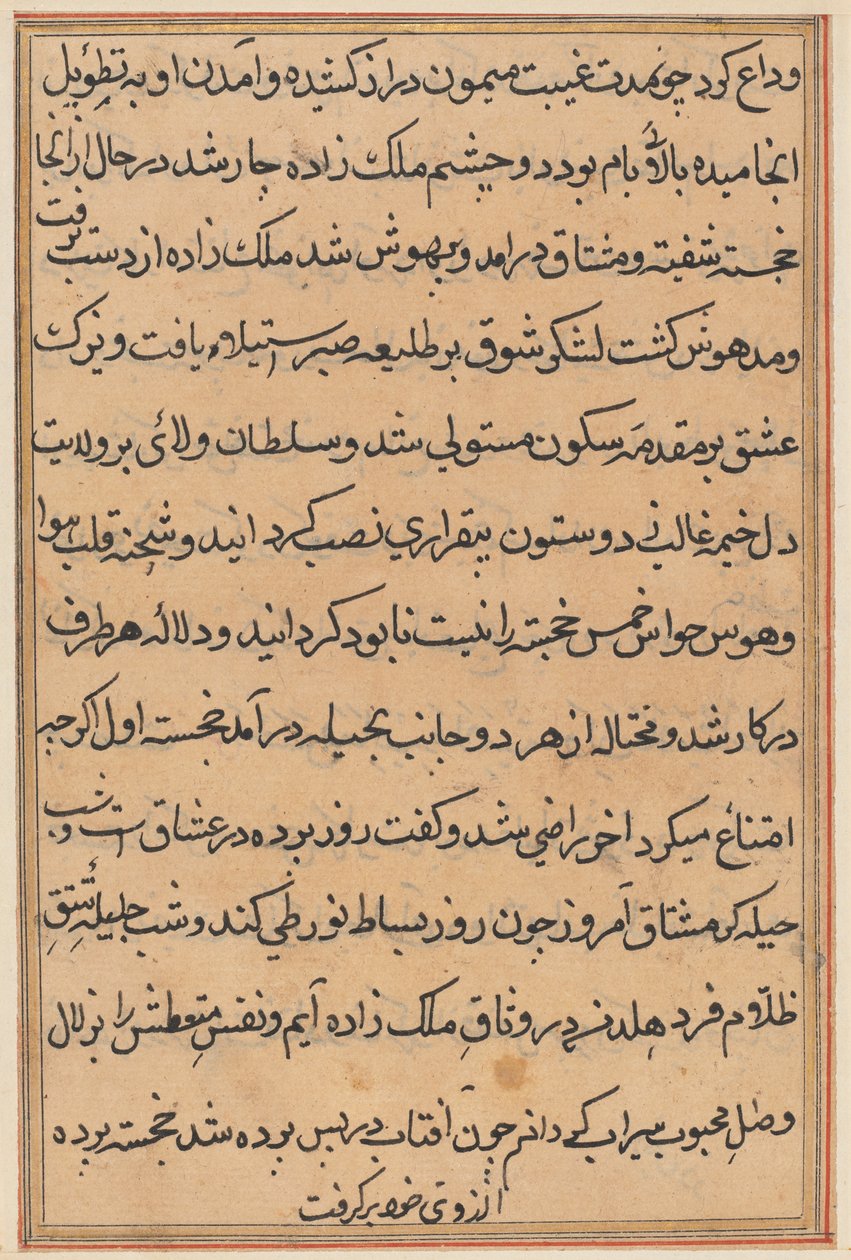 وداع کرد چونمدت غیبت میمون دراز کشیده و آمدن او به تطویل
انجامیده بالاء بام بود دو چشم ملک زاده چار شد در حال از انجا
خجسته شفیته و مشتاق درامد و بیهوش شد ملک زاده از دست برفت
و مدهوش کشت لشکر شوق بر طلیعه صبر استیلاء یافت و یزک
عشق بر مقدمه سکون مستولی شد و سلطان ولائی بر ولایت
دل خیمه غالب دوستون بیقراری نصب کردانید و شحنه قلب هوا
و هوس حواس خمس خجسته را نیست نابود کردانید و دلاله هر طرف
در کار شد و محتاله از هر دو جانب بحیله درآمد خجسته اول اکرچه
امتناع میکرد اخر راضی شد و کفت روز پرده در عشاق است و شب
حیله کر مشتاق امروز چون روز بساط نور طی کند و شب
ظلام فرو هلد در وثاقِ ملک زاده آیم و نفسِ متعطش را بزلال
وصلِ محبوب سیراب کردانم چون آفتاب در پس پرده شد خجسته پرده
از روی خود برکرفت